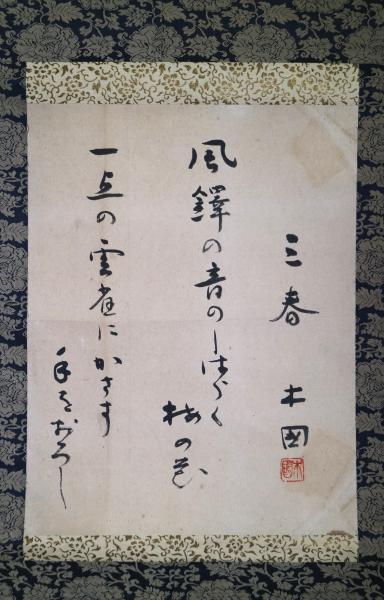 三春 木國
風鐸の音のしはらく
梅の花
一点の雲雀にかさす
手をおろし